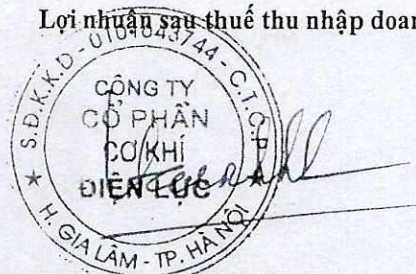 Lợi nhuận sau thuế thu nhập doan
S.Đ.K.K.D - 0101043744 - C.T.C.P
CÔNG TY
CỔ PHẦN
CƠ KHÍ
ĐIỆN LỰC
★ H. GIA LÂM - TP. HÀ NỘI ★